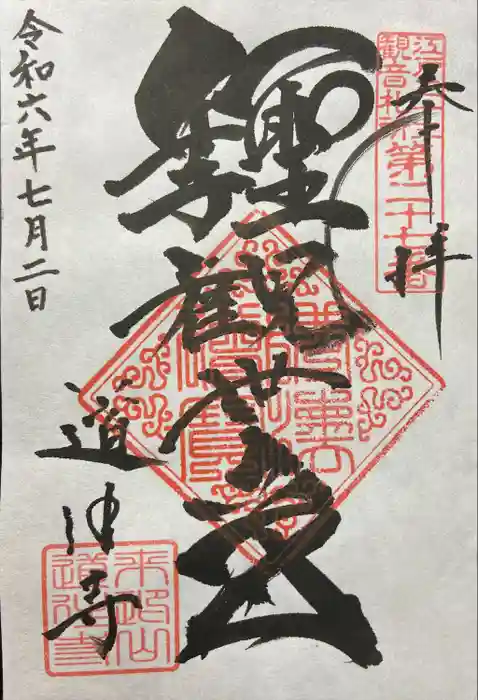 奉拝
江戸三十三
観音札所第二十七番
聖
千手
観世音
道往寺
来迎山
道往寺
令和六年七月二日